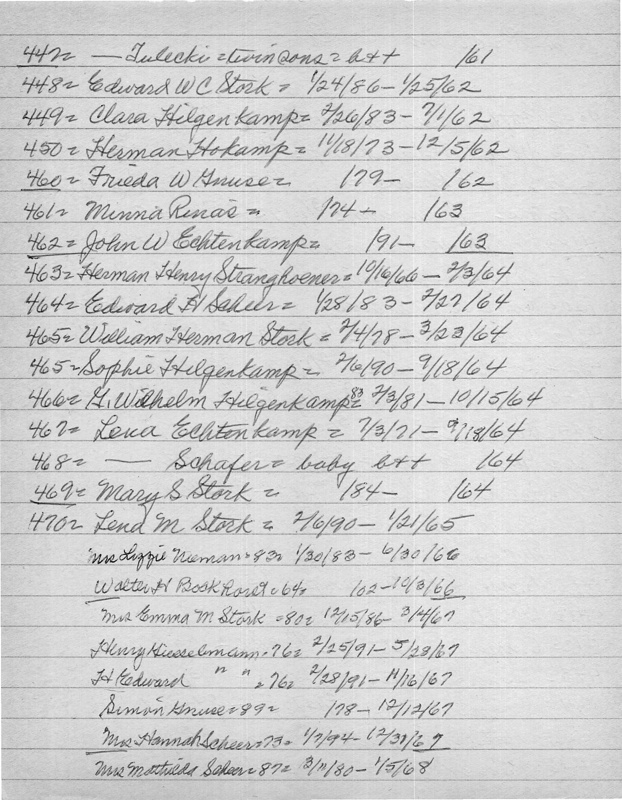 447= — Tulecki = twin sons = b++ /61
448= Edward W C Stork = 1/24/86 - 1/25/62
449= Clara Hilgenkamp = 2/26/83 - 7/1/62
450= Herman Hokamp = 11/18/73 - 12/5/62
460= Frieda W Gruse = /79 - /62
461= Minna Renas = /74 - /63
462= John W Echtenkamp = /91 - /63
463= Herman Henry Stranghoener = 10/16/66 - 2/3/64
464= Edward H Scheer = 1/28/83 - 2/27/64
465= William Herman Stork = 2/4/78 - 3/23/64
465= Sophie Hilgenkamp = 2/6/90 - 9/18/64
466= G. Wilhelm Hilgenkamp 83 = 2/3/81 - 10/15/64
467= Lena Echtenkamp = 7/3/71 - 9/18/64
468= — Schafer = baby b++ /64
469= Mary S Stork = /84 - /64
470= Lena M Stork = 2/6/90 - 1/21/65
Mrs Lizzie Nieman = 83= 1/30/83 - 6/30/66
Walter H = 64= /02 - 10/3/66
Mrs Emma M Stork = 80= 12/15/86 - 3/4/67
Henry Giesselmann = 76= 2/25/91 - 5/28/67
H Edward " " = 76= 2/28/91 - 11/16/67
Simon Gruse = 89= /78 - 12/12/67
Mrs Hannah Scheer = 73= 1/7/94 - 12/31/67
Mrs Mathilda Scheer = 87= 3/11/80 - 1/5/68